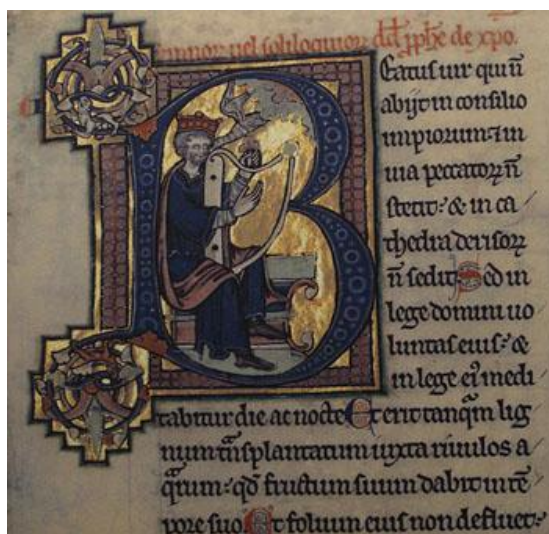 ymnor vel soliloquior dd pphe de xpo.
B
eatus uir qui n̄
abijt in consilio
impiorum: & in
uia peccatoꝝ n̄
stetit: & in ca
thedra derisoꝝ
n̄ sedit: Sed in
lege domini uo
luntas eius: &
in lege ei᷒ medi
tabitur die ac nocte Et erit tanq̄m lig
num tn̄splantatum iuxta riuulos a
q̄rum: qd̄ fructum suum dabit in tē
pore suo. Et folium eius non defluet: